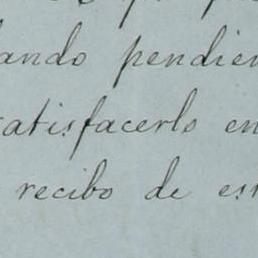 ando pendien
satisfacerlo en
recibo de es